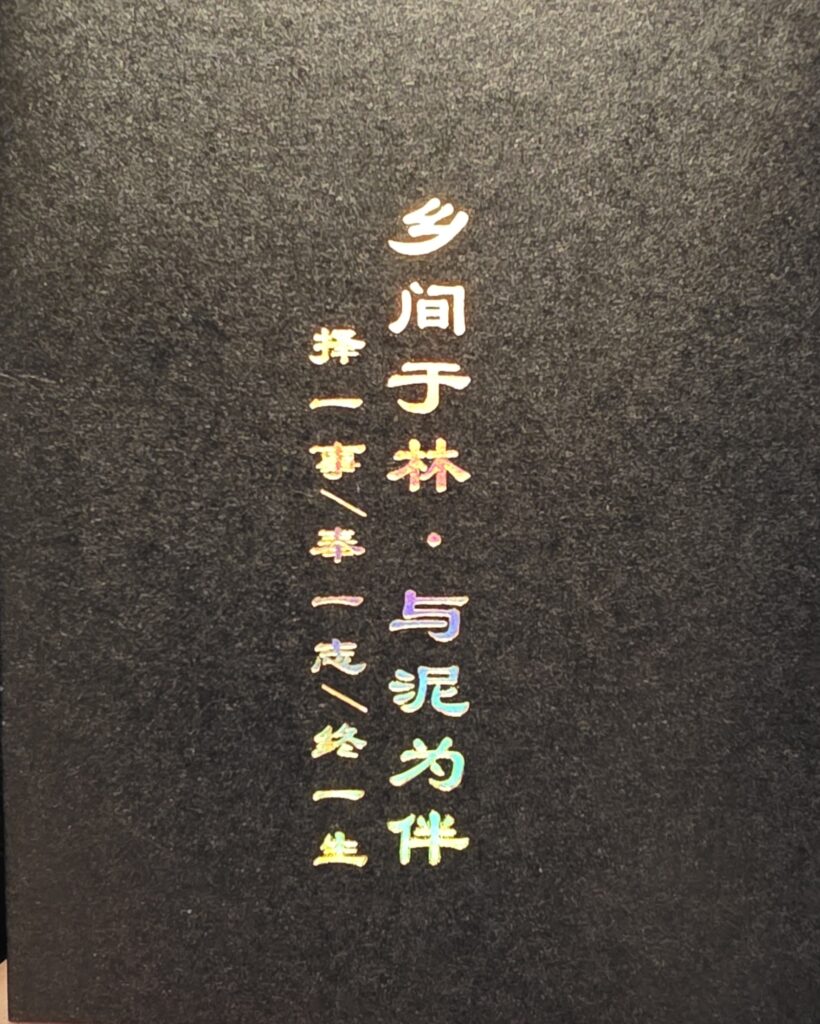 乡间于林·与泥为伴
择一事/奉一志/终一生